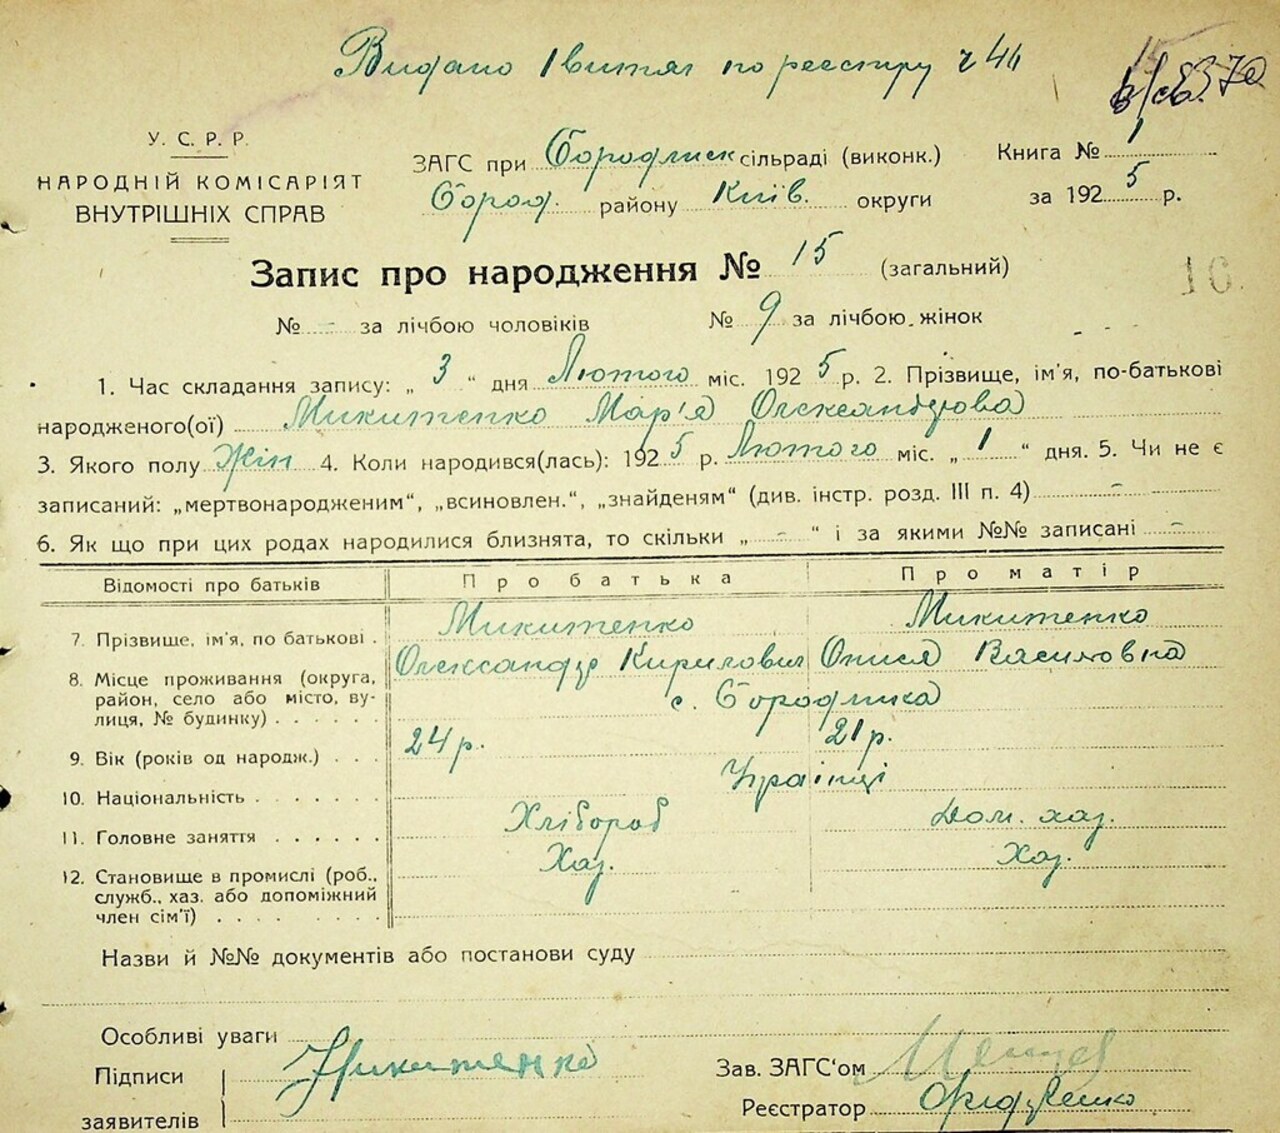 Видано 1 витяг по реєстру ч 44
У. С. Р. Р.
НАРОДНІЙ КОМІСАРІЯТ
ВНУТРІШНІХ СПРАВ
ЗАГС при Бородянск сільраді (виконк.)
Бород. району Київ. округи
Книга № 1
за 1925 р.
Запис про народження № 15 (загальний)
10
№ - за лічбою чоловіків № 9 за лічбою жінок
1. Час складання запису: „ 3 “ дня Лютого міс. 1925 р. 2. Прізвище, ім'я, по-батькові
народженого(ої) Микитенко Мар'я Олександрова
3. Якого полу Жін 4. Коли народився(лась): 1925 р. Лютого міс. „ 1 “ дня. 5. Чи не є
записаний: „мертвонародженим“, „всиновлен.“, „знайденям“ (див. інстр. розд. III п. 4) -
6. Як що при цих родах народилися близнята, то скільки „ - “ і за якими №№ записані -
Відомості про батьків Про батька Про матір
7. Прізвище, ім'я, по батькові . Микитенко Микитенко
Олександр Кирилович Онися Василовна
8. Місце проживання (округа,
район, село або місто, ву-
лиця, № будинку) . . . . . . с. Бородянка
9. Вік (років од народж.) . . . 24 р. 21 р.
10. Національність . . . . . . . Українці
11. Головне заняття . . . . . . Хлібороб Дом. хаз.
12. Становище в промислі (роб.,
служб., хаз. або допоміжний
член сім'ї) . . . . . . . . Хаз. Хаз.
Назви й №№ документів або постанови суду
Особливі уваги
Підписи
заявителів
Микитенко
Зав. ЗАГС'ом
Реєстратор